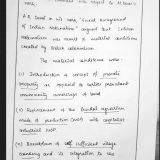 A.R. Desai in his work 'Social Background
of Indian Nationalism' argued that Indian
Nationalism was result of material conditions
created by British colonialism.
The material conditions were:
(i) Introduction of concept of private
property as opposed to earlier prevalent
community ownership of land.
(ii) Replacement of the feudal agrarian
mode of production (MOP) with capitalist
industrial MOP.
(iii) Breakdown of self sufficient village
economy and its integration to the